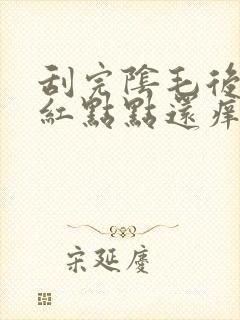 刮完陰毛後
紅點點還痒
宋延慶